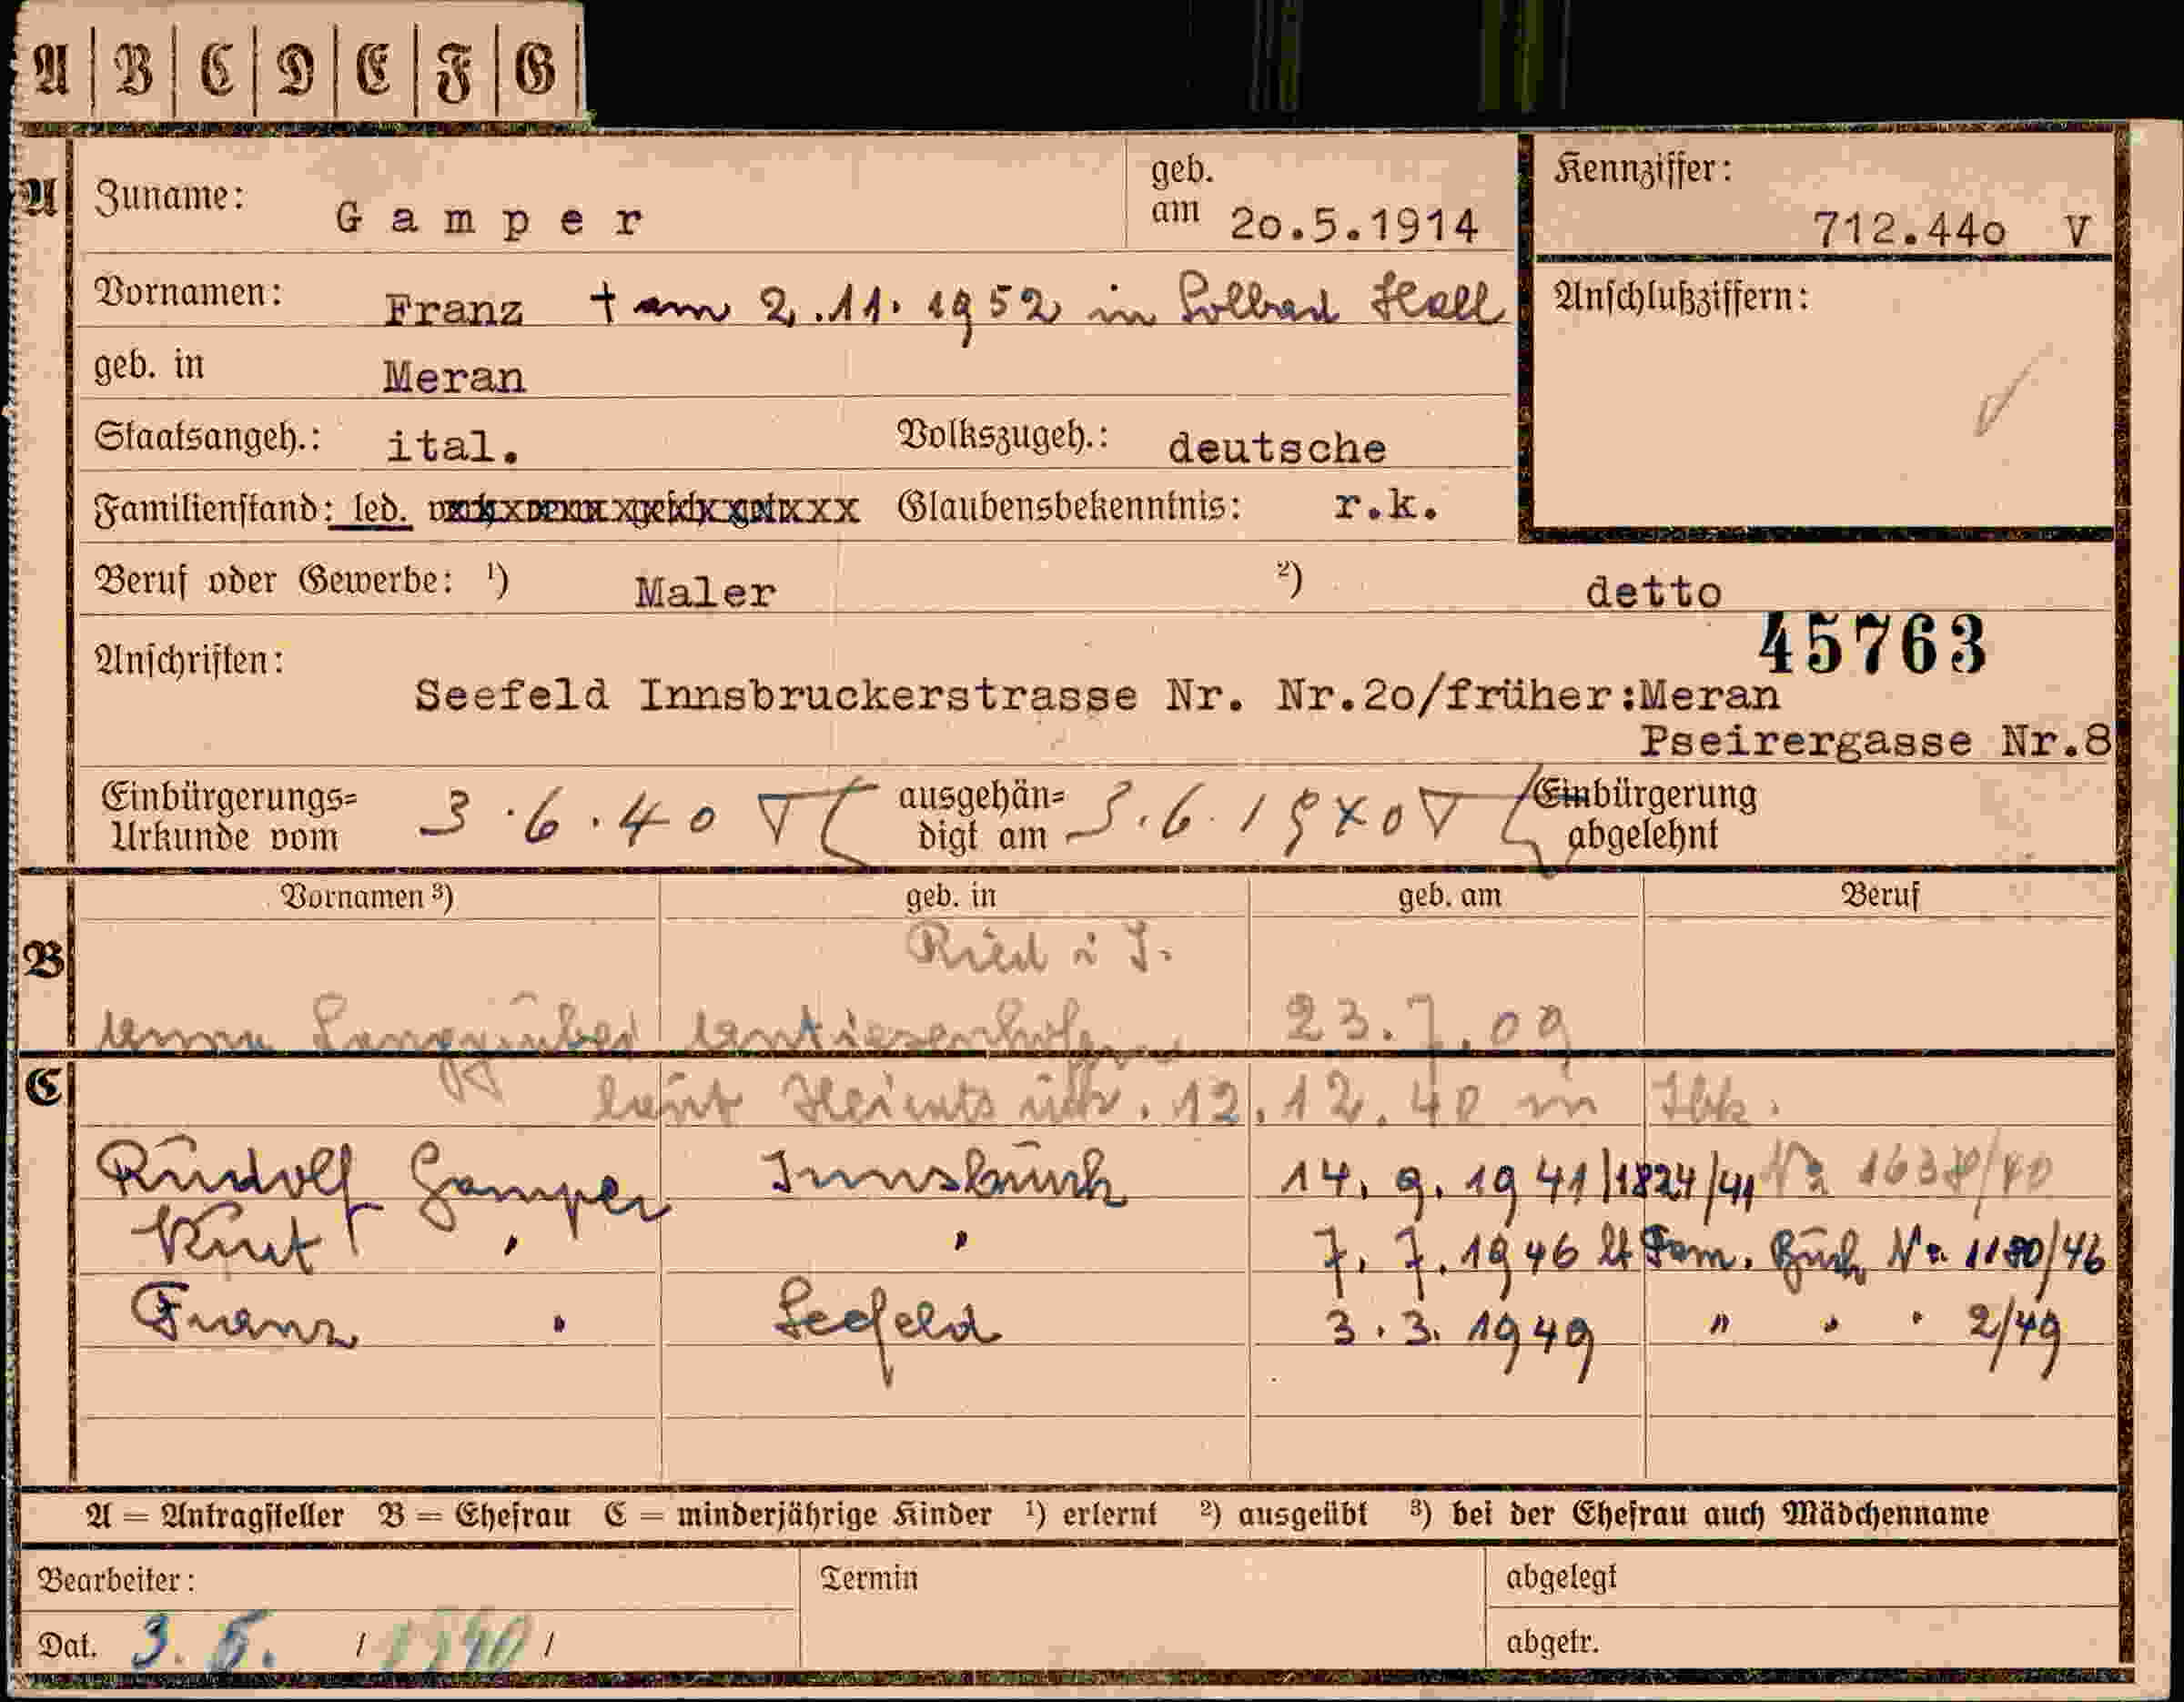 A | B | C | D | E | F | G
A Zuname: Gamper geb. am 20.5.1914 Kennziffer: 712.440 V
Vornamen: Franz † am 2.11.1952 in Solbad Hall Anschlußziffern:
geb. in Meran
Staatsangeh.: ital. Volkszugeh.: deutsche
Familienstand: led. Glaubensbekenntnis: r.k.
Beruf oder Gewerbe: ¹) Maler ²) detto
45763
Anschriften:
Seefeld Innsbruckerstrasse Nr. Nr.20/früher:Meran
Pseirergasse Nr.8
Einbürgerungs= ausgehän= Einbürgerung
Urkunde vom 3.6.40 digt am 3.6.1940 abgelehnt
Vornamen ³) geb. in geb. am Beruf
B Ried i I.
23.7.09
C laut Heiratsurk. 12.12.40 in Ibk.
Rudolf Gamper Innsbruck 14.9.1941 | 1824/41 Nr 1638/40
Kurt " " 7.7.1946 lt Fam. Buch Nr. 1180/46
Franz " Seefeld 3.3.1949 " " " 2/49
A = Antragsteller B = Ehefrau C = minderjährige Kinder ¹) erlernt ²) ausgeübt ³) bei der Ehefrau auch Mädchenname
Bearbeiter: Termin abgelegt
Dat. 3. 6. / 1940 / abgetr.